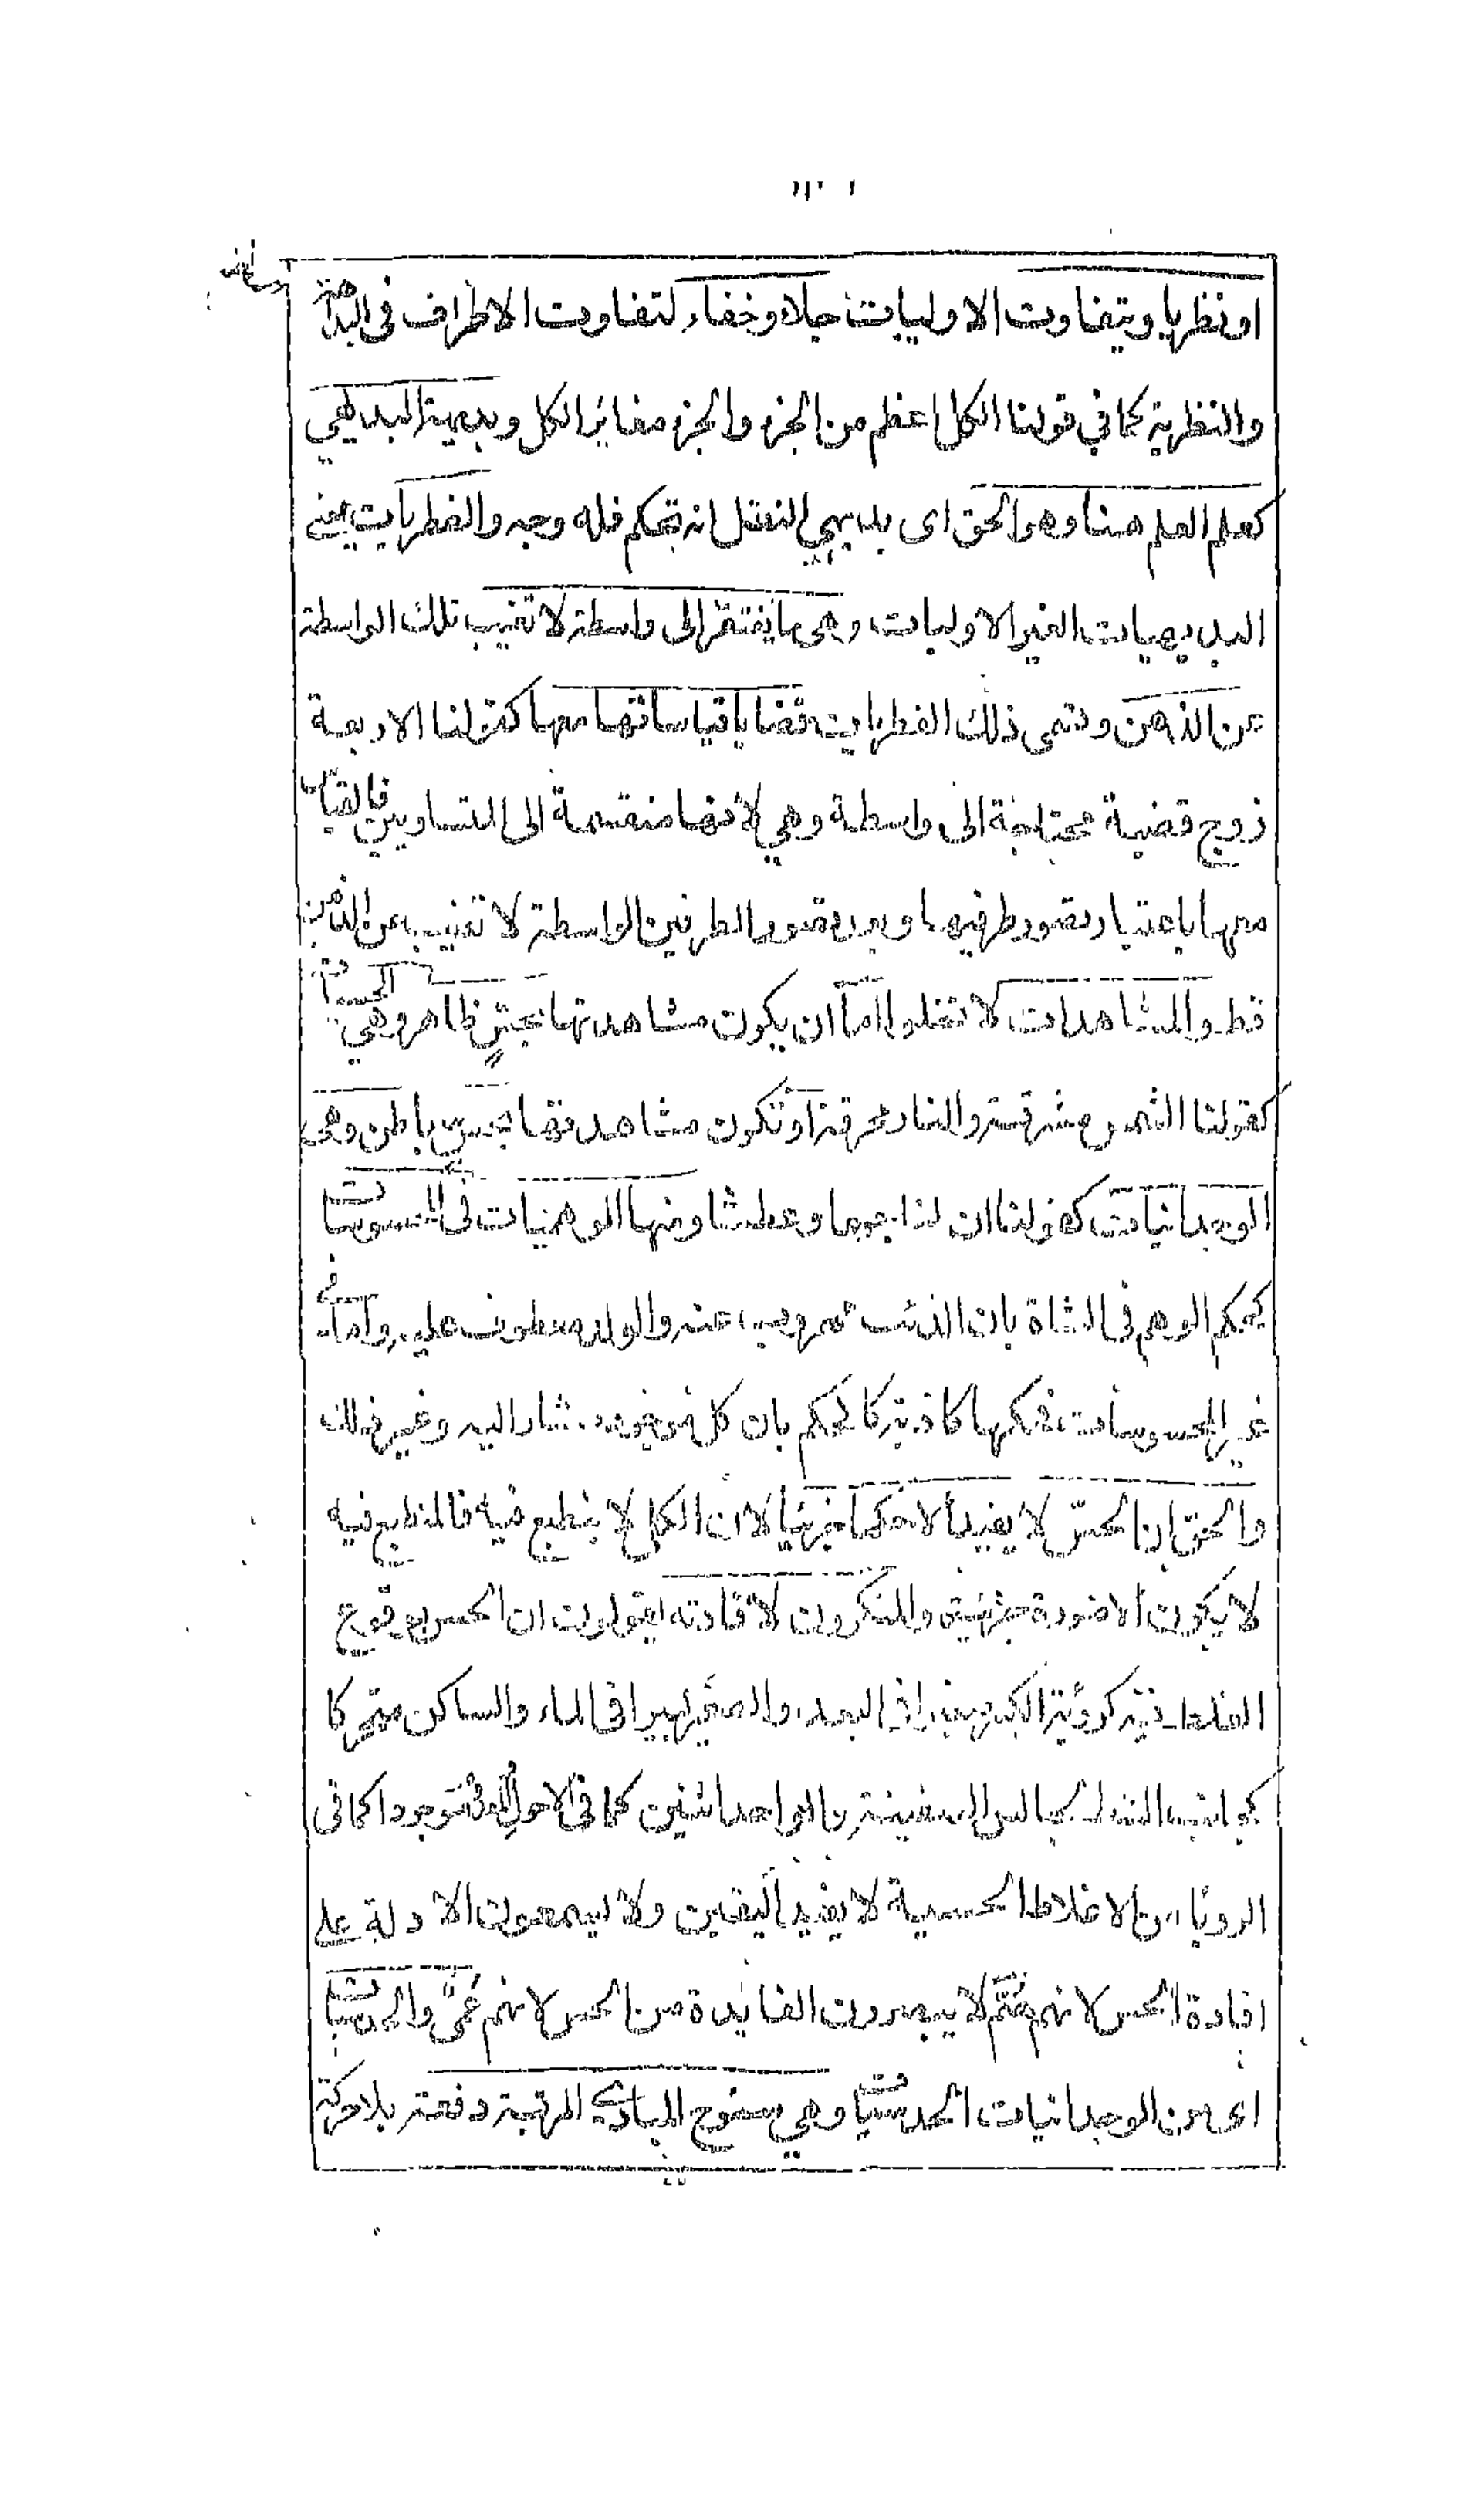 او نظريا ويتفاوت الاوليات جلاء وخفاء لتفاوت الاطراف في البداهة
والنظرية كما في قولنا الكل اعظم من الجزء والجزء مغائر الكل وبديهية البديهي
كعلم العلم هنا وهو الحق اى بديهي النعقل انه تحكم فله وجه والفطريات يعني
البديهيات الغير الاوليات وهي ما يفتقر الى واسطة لا تغيب تلك الواسطة
عن الذهن وتسمى ذلك الفطريات قضايا قياساتها معها كقولنا الاربعة
زوج قضية محتاجة الى واسطة وهي لانها منقسمة الى المتساويين فالقياس
معها باعتبار تصور طرفيها وبعد تصور الطرفين الواسطة لا تغيب عن الذهن
قط والمشاهدات لا تخلوا اما ان يكون مشاهدتها بحسٍ ظاهر وهي الحسيات
كقولنا الشمس مشرقة والنار محرقة او تكون مشاهدتها بحس باطن وهي
الوجدانيات كقولنا ان لنا جوعا وعطشا ومنها الوهميات في المحسوسات
كحكم الوهم في الشاة بان الذئب مهروب عنه والولد معطوف عليه واما في
غير المحسوسات فحكمها كاذبة كالحكم بان كل موجود مشار اليه وغير ذلك
والحق ان الحسّ لا يفيد الا حكما جزئيا لان الكل لا ينطبع فيه فالمنطبع فيه
لا يكون الا صورة جزئية والمنكرون لافادته يقولون ان الحس بوقوع
الغلط فيه كرؤية الكبير صغيرا في البعد والصغير كبيرا في الماء والساكن متحركا
كجانب الشط لجالس السفينة والواحد اثنين كما في الاحول موجودا كما في
الرويا من الاغلاط الحسية لا يفيد اليقين ولا يسمعون الادلة على
افادة الحس لانهم صُمٌّ لا يبصرون الفائدة من الحس لانهم عُمىٌ والحدسيات
اى من الوجدانيات الحدسيات وهي سنوح المبادي المرتبة دفعة بلا حركة